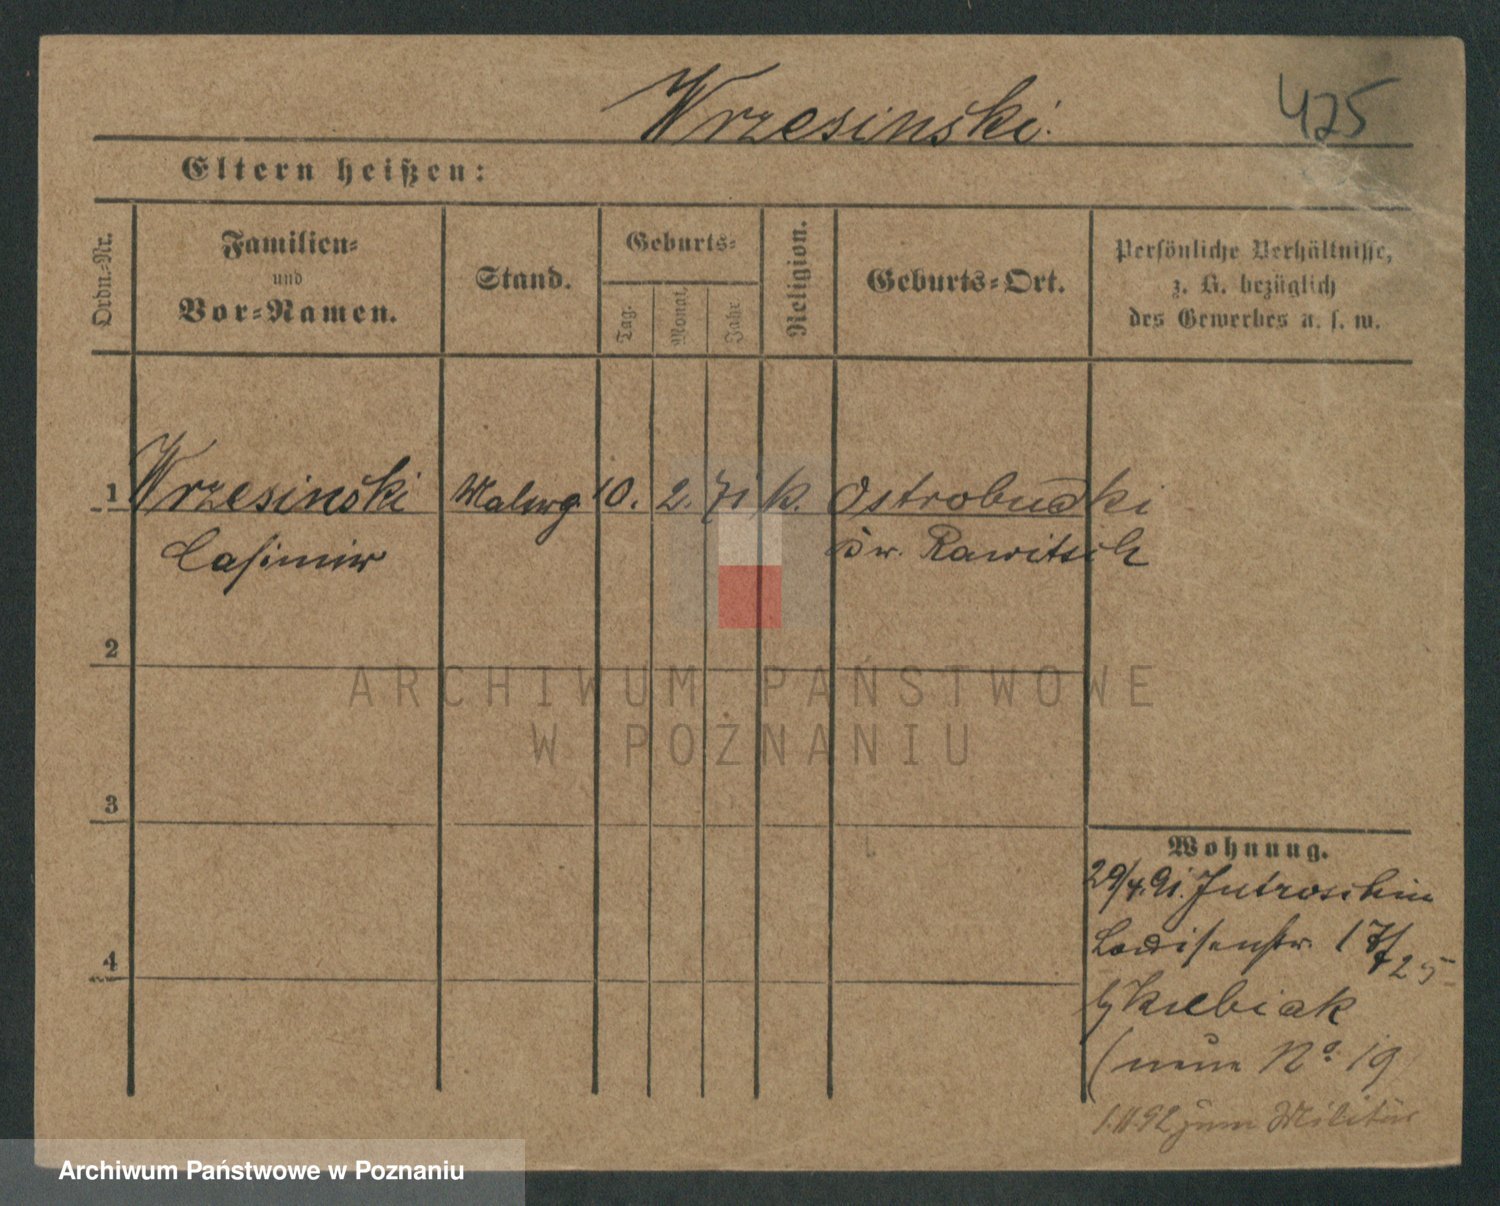 Wrzesinski.
425
Eltern heißen:
Ordn.-Nr.
Familien-
und
Vor-Namen.
Stand.
Geburts-
Tag.
Monat.
Jahr
Religion.
Geburts-Ort.
Persönliche Verhältnisse,
z. B. bezüglich
des Gewerbes u. s. w.
1 Wrzesinski Malerg. 10. 2. 71 k. Ostrobudki
Casimir Kr. Rawitsch
2
ARCHIWUM PAŃSTWOWE
W POZNANIU
3
Wohnung.
29/4. 91. Jutroschin
4
Louisenstr. 17/
725
b/ Kubiak
(neue No. 19
1.11.92 zum Militär
Archiwum Państwowe w Poznaniu